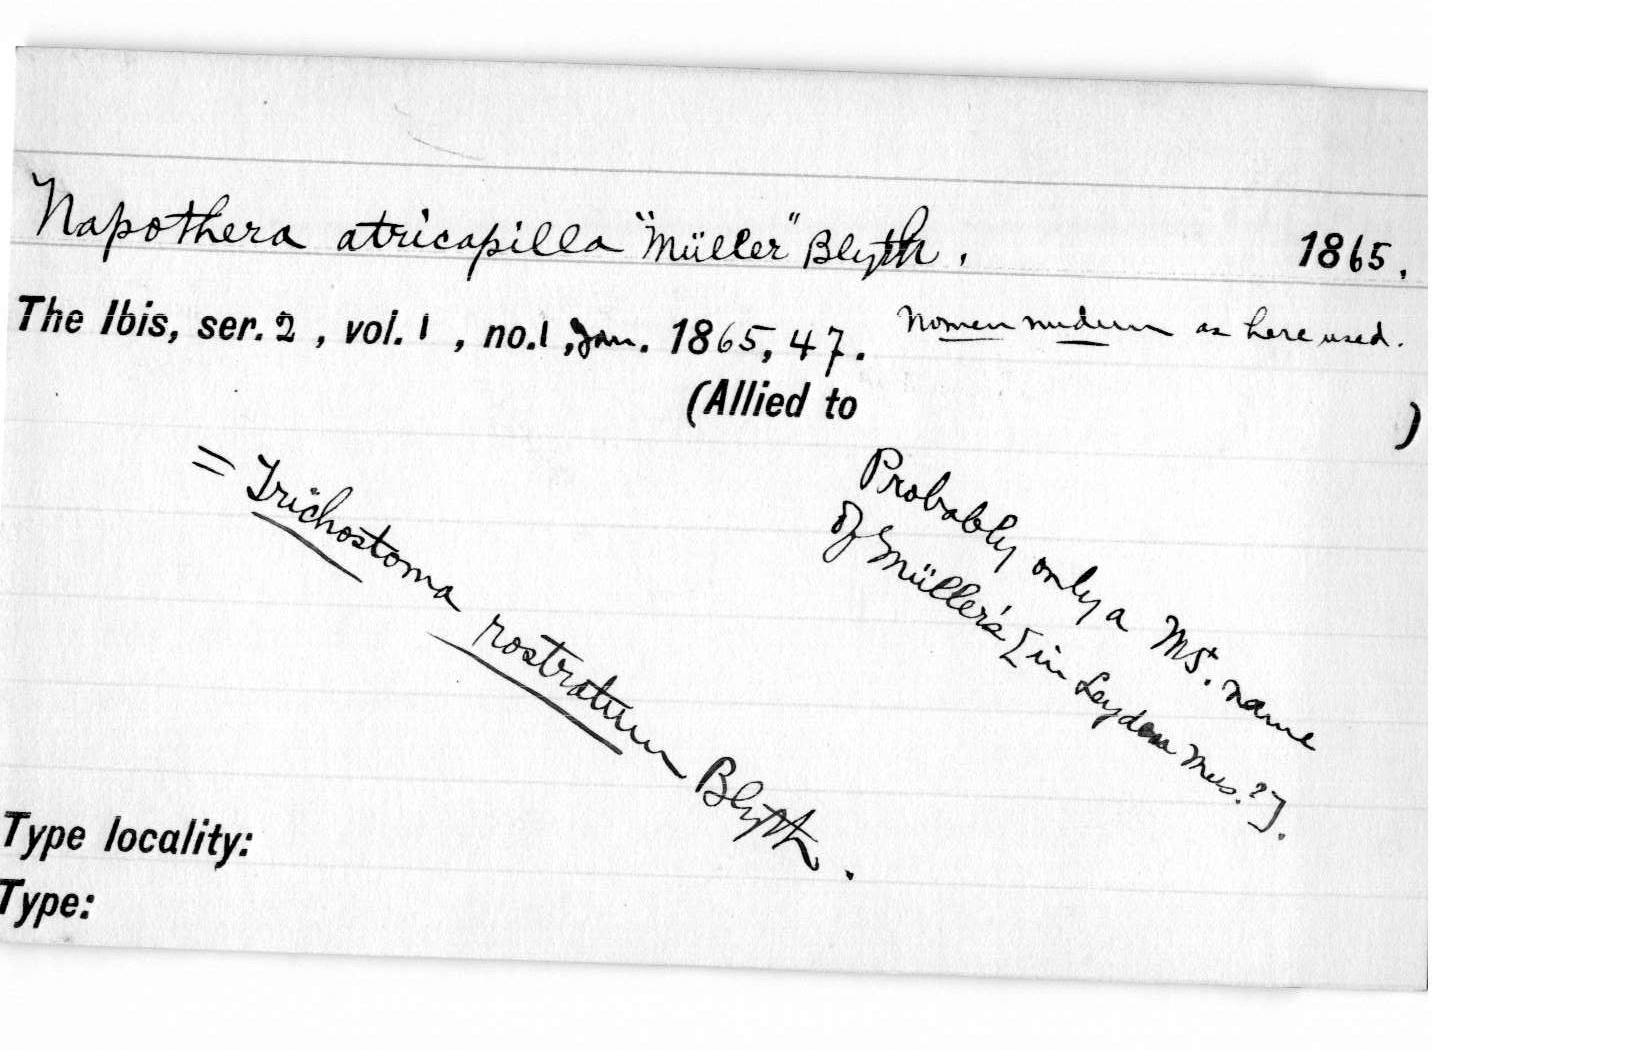 Napothera atricapilla "Müller" Blyth. 1865.
The Ibis, ser. 2, vol. 1, no. 1, Jan. 1865, 47. Nomen nudum as here used.
(Allied to )
= Trichostoma rostratum Blyth.
Probably only a MS. name
of Müller's [in Leyden Mus.?].
Type locality:
Type: